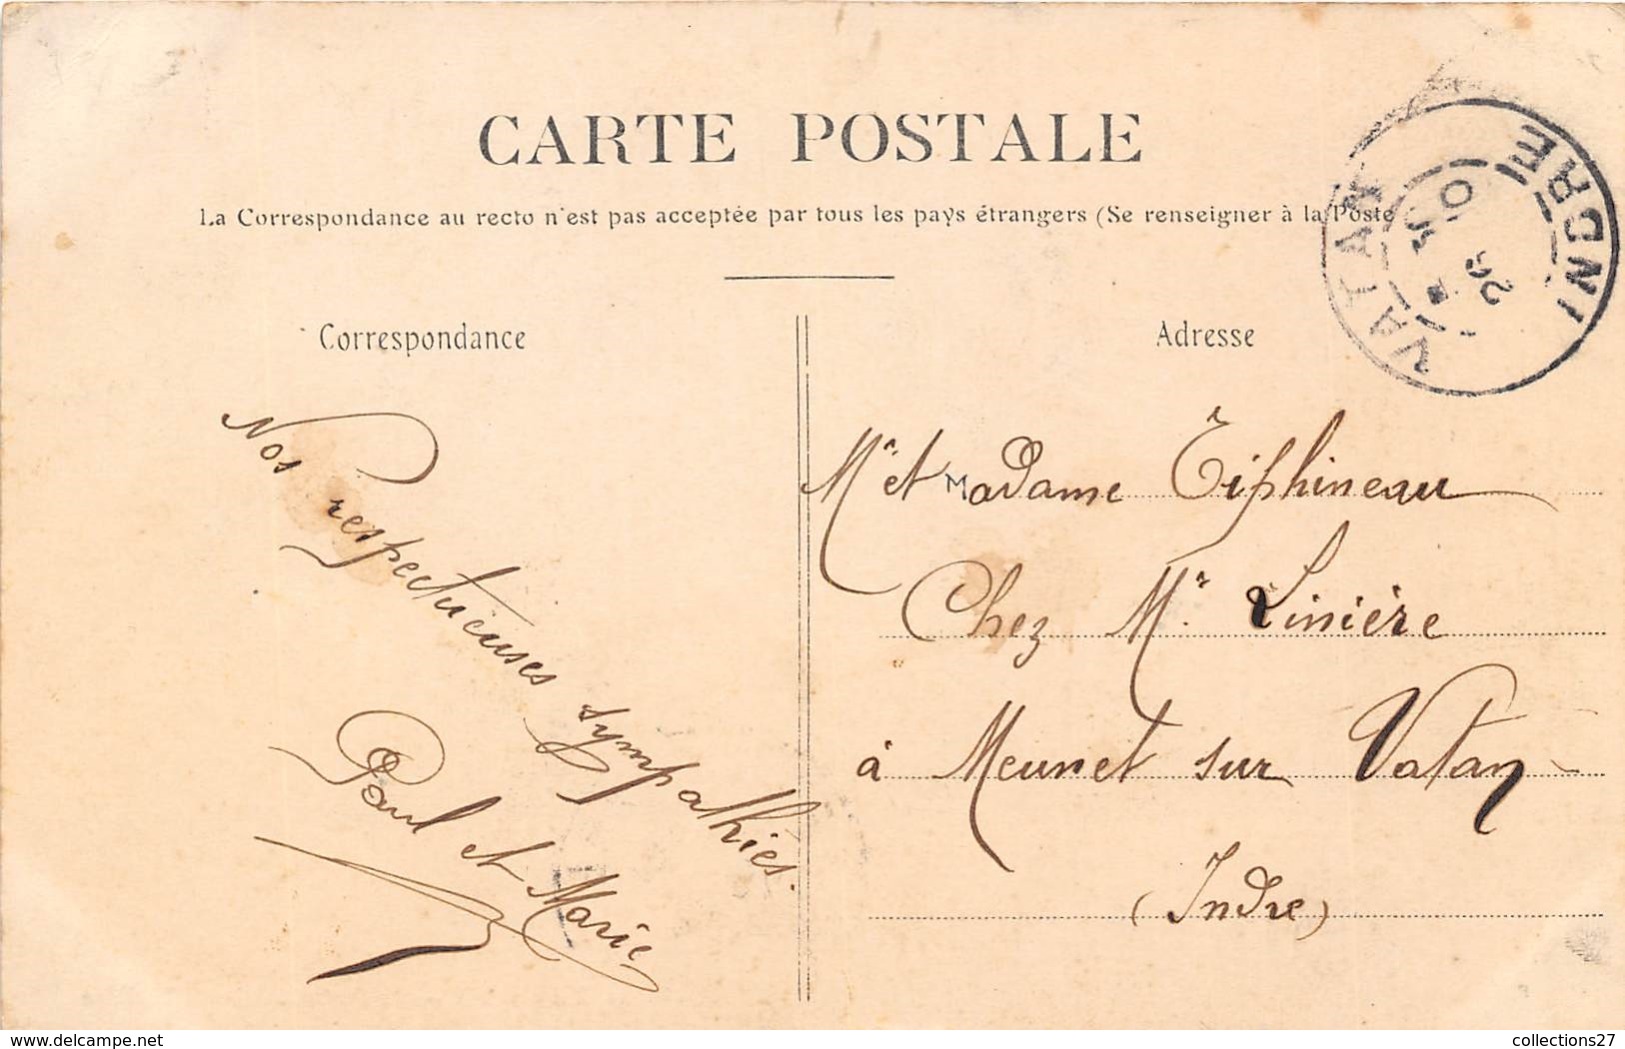 CARTE POSTALE
La Correspondance au recto n'est pas acceptée par tous les pays étrangers (Se renseigner à la Poste
Correspondance
Nos respectueuses sympathies.
Paul et Marie
Adresse
Mr et Madame Tiphineau
Chez Mr. Linière
à Meunet sur Vatan
(Indre)
VATAN
INDRE
26
delcampe.net
collections27